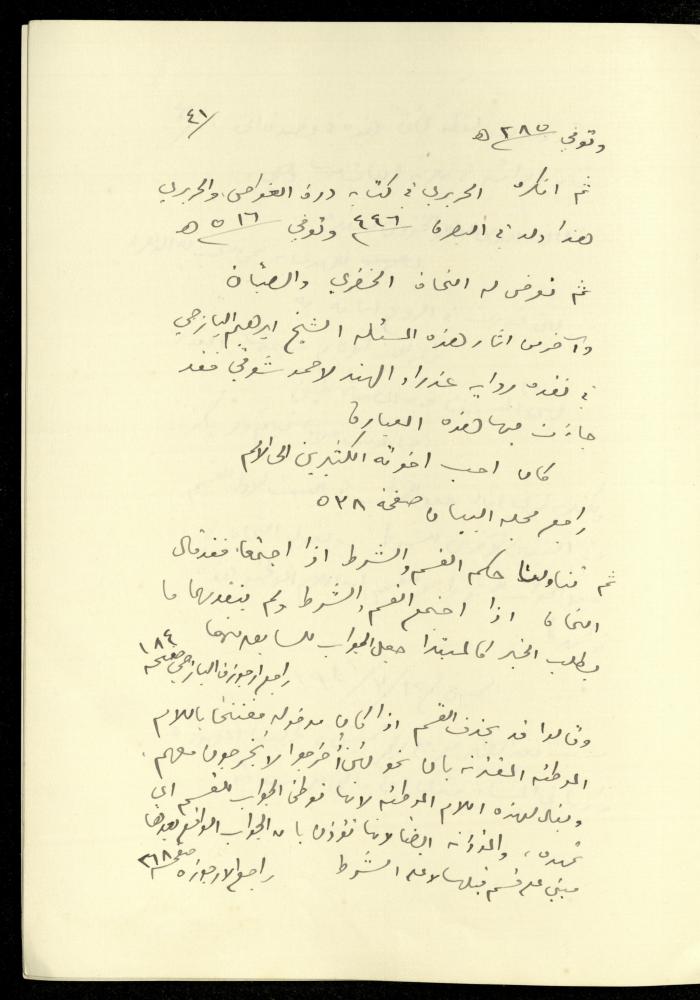 ٤١/
وتوفي ٢٨٥ هـ
ثم انكره الحريري في كتابه درة الغواص والحريري
هذا ولد في البصرة ٤٤٦ وتوفي ٥١٦ هـ
ثم تعرض له النحاة الخضري والصبّان
وآخر من اثار هذه المسئلة الشيخ ابرهيم اليازجي
في نقده رواية عذراء الهند لاحمد شوقي فقد
جاءت فيها هذه العبارة
كان احب اخوته الكثيرين الى الأم
راجع مجلة البيان صفحة ٥٣٨
ثم تناولنا حكم القسم والشرط اذا اجتمعا فقد قال
النحاة اذا اجتمع القسم والشرط ولم يتقدمهما ما
يطلب الخبر كالمبتدا جعل الجواب للسابق منهما
راجع ارجوزة اليازجي صفحة ١٨٤
وقالوا قد يحذف القسم اذا كان مدخوله مفتتحًا باللام
الموطئة المقترنة بان نحو لئن أُخرجوا لا يخرجون معهم.
ويقال لهذه اللام الموطئة لانها توطئ الجواب للقسم اي
تمهده، والمؤذنة ايضًا لانها تؤذن بان الجواب الواقع بعدها
مبني على قسم قبلها لا على الشرط راجع الارجوزة صفحة ٣٦٨